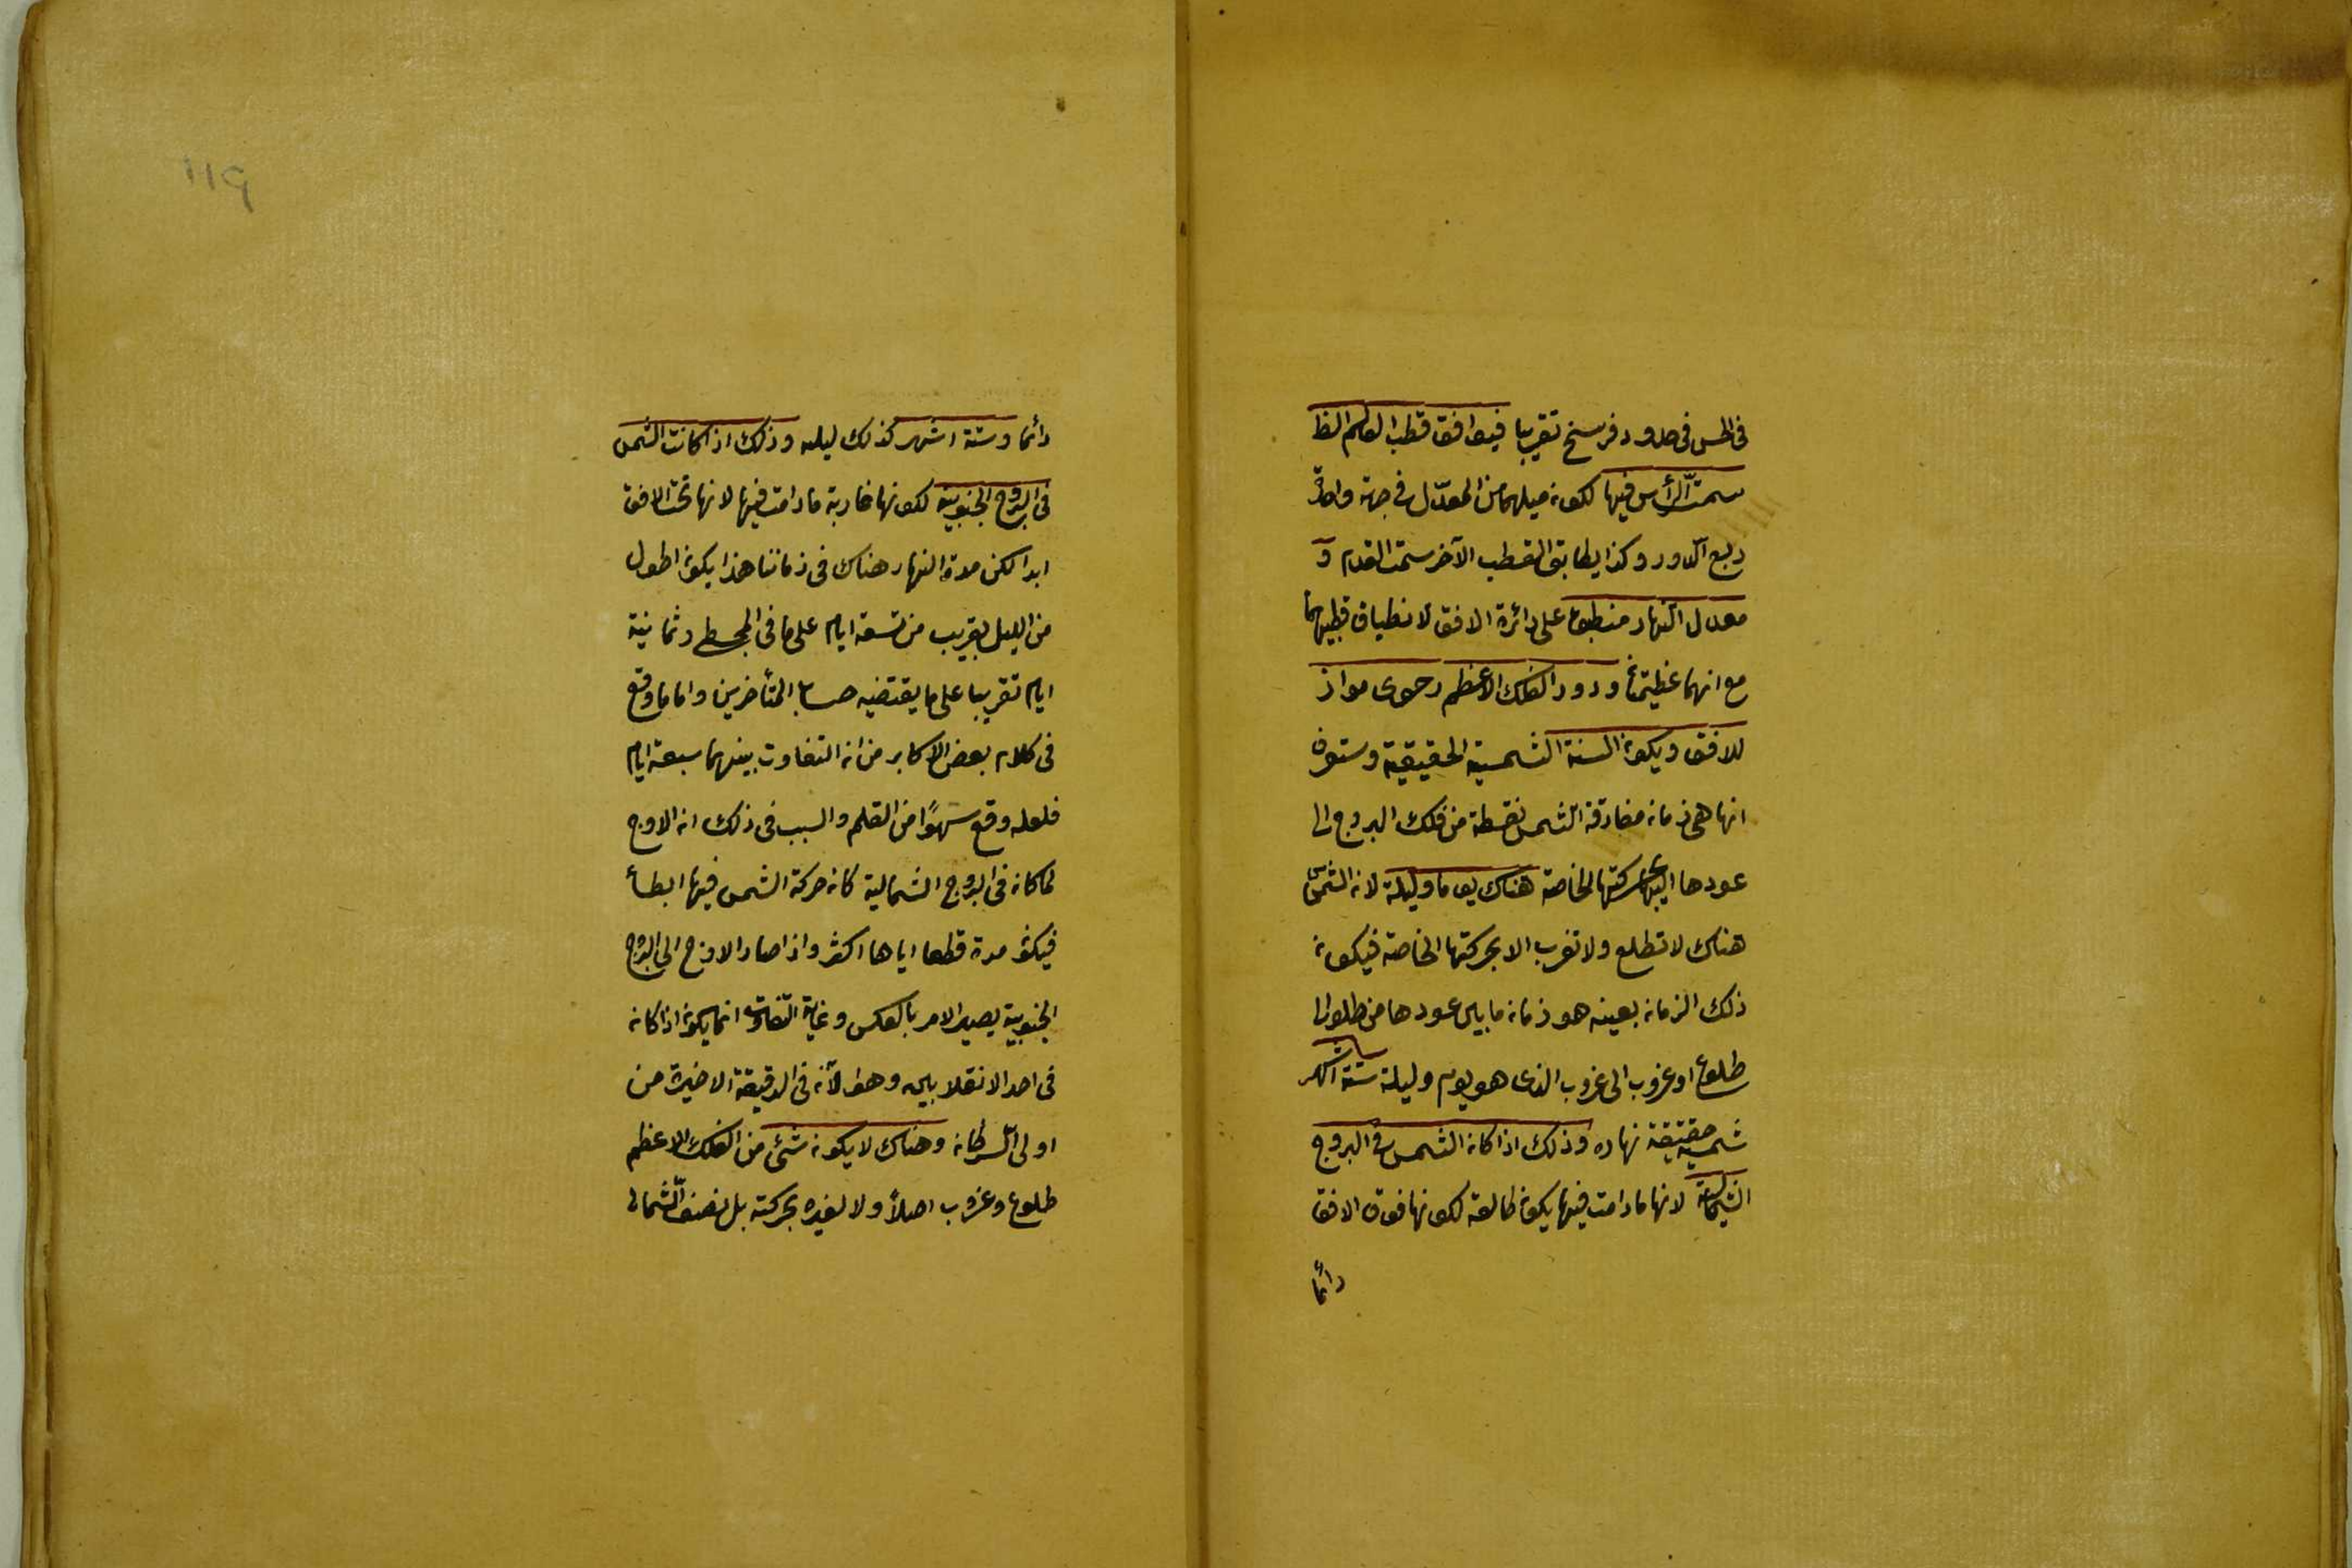 فى الحس فى حدود فرسخ تقريبا فيوافق قطب العالم الظ
سمت الرأس فيها لكون ميلهما من المعدّل فى جهة واحدة
ربع الدور وكذا يطابق القطب الآخر سمت القدم و
معدل النهار منطبقا على دائرة الافق لانطباق قطبيهما
مع انهما عظيمتان ودور الفلك الاعظم رحوى مواز
للافق ويكون السنة الشمسية الحقيقية وستعرف
انها هى زمان مفارقة الشمس نقطة من فلك البروج الى
عودها اليها بحركتها الخاصة هناك يوما وليلة لان الشمس
هناك لا تطلع ولا تغرب الا بحركتها الخاصة فيكون
ذلك الزمان بعينه هو زمان ما بين عودها من طلوع الى
طلوع او غروب الى غروب الذى هو يوم وليلة ستة اشهر
شمسية حقيقية نهاره وذلك اذا كان الشمس فى البروج
الشمالية لانها ما دامت فيها يكون طالعة لكونها فوق الافق
دائما
دائما وستة اشهر كذلك ليله وذلك اذا كانت الشمس
فى البروج الجنوبية لكونها غاربة ما دامت فيها لانها تحت الافق
ابدا لكن مدة النهار هناك فى زماننا هذا يكون اطول
من الليل بقريب من تسعة ايام على ما فى المجسطى وثمانية
ايام تقريبا على ما يقتضيه حساب المتأخرين واما ما وقع
فى كلام بعض الاكابر من ان التفاوت بينهما سبعة ايام
فلعله وقع سهوًا من القلم والسبب فى ذلك ان الاوج
لما كان فى البروج الشمالية كان حركة الشمس فيها ابطأ
فيكون مدة قطعها اياها اكثر واذا صار الاوج الى البروج
الجنوبية يصير الامر بالعكس وغاية التفاوت انما يكون اذا كان
فى احد الانقلابين وهو الآن فى الدقيقة الاخيرة من
اولى السرطان وهناك لا يكون شئ من الفلك الاعظم
طلوع وغروب اصلاً ولا لغيره بحركته بل نصفه الشمالى